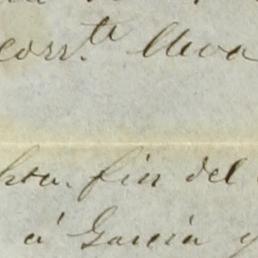 corr.te lleva
hta. fin del
á Garcia y